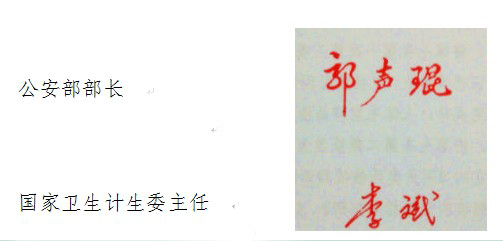 公安部部长 郭声琨
国家卫生计生委主任 李斌